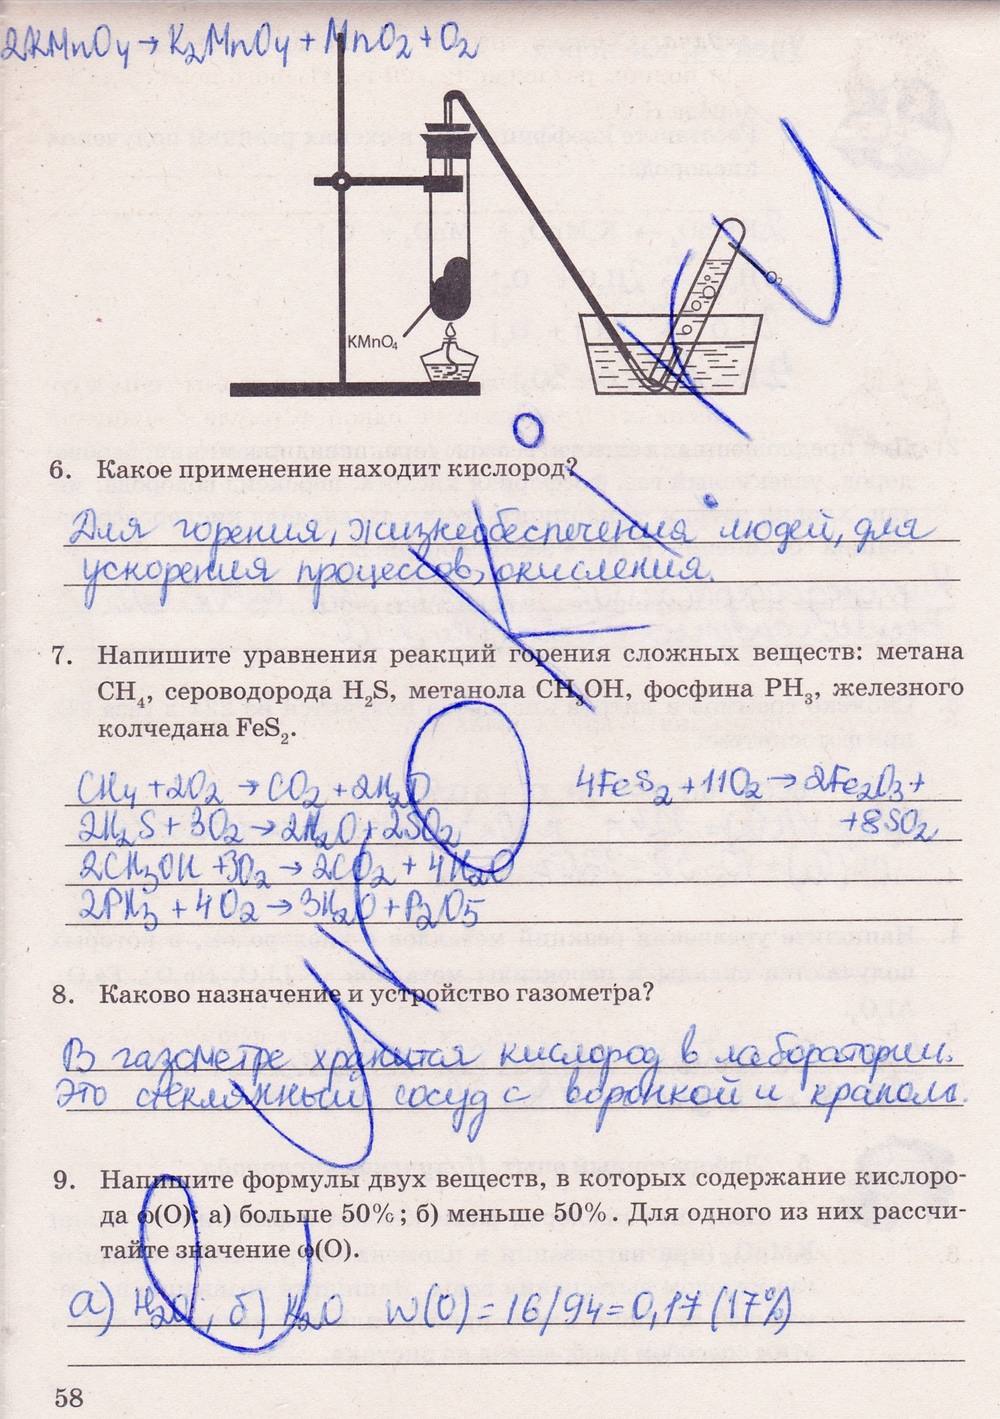 2KMnO4 → K2MnO4 + MnO2 + O2
O2
KMnO4
6. Какое применение находит кислород?
Для горения, жизнеобеспечения людей, для
ускорения процессов, окисления.
7. Напишите уравнения реакций горения сложных веществ: метана
CH4, сероводорода H2S, метанола CH3OH, фосфина PH3, железного
колчедана FeS2.
CH4 + 2O2 → CO2 + 2H2O 4FeS2 + 11O2 → 2Fe2O3 +
2H2S + 3O2 → 2H2O + 2SO2 +8SO2
2CH3OH + 3O2 → 2CO2 + 4H2O
2PH3 + 4O2 → 3H2O + P2O5
8. Каково назначение и устройство газометра?
В газометре хранится кислород в лаборатории.
Это стеклянный сосуд с воронкой и краном.
9. Напишите формулы двух веществ, в которых содержание кислоро-
да ω(O): а) больше 50%; б) меньше 50%. Для одного из них рассчи-
тайте значение ω(O).
а) H2O; б) K2O w(O) = 16/94 = 0,17 (17%)
58